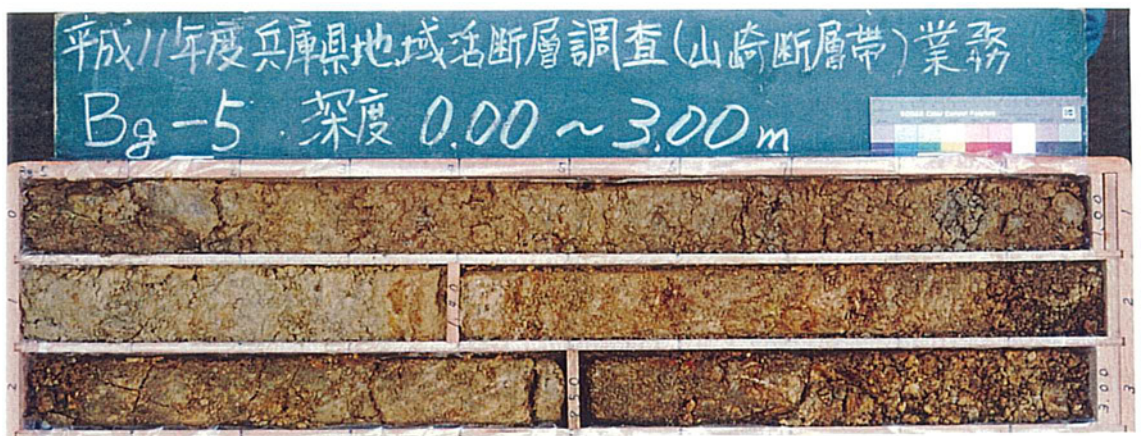 平成11年度兵庫県地域活断層調査(山崎断層帯)業務
Bg-5 深度 0.00～3.00m
0
1.00
1
1
2
2
3.00
3